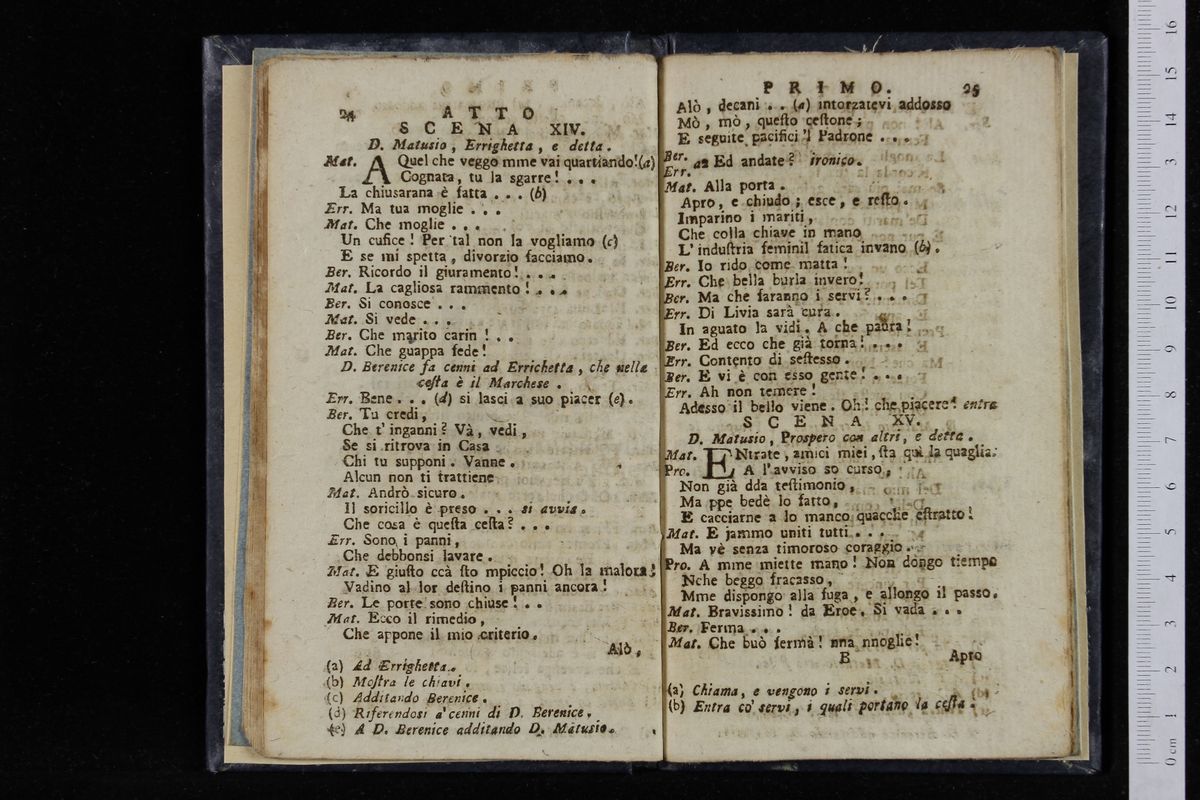 24 ATTO
SCENA XIV.
D. Matusio, Errighetta, e detta.
Mat. A Quel che veggo mme vai quartiando! (a)
Cognata, tu la sgarre! . . .
La chiusarana è fatta . . . (b)
Err. Ma tua moglie . . .
Mat. Che moglie . . .
Un cufice! Per tal non la vogliamo (c)
E se mi spetta, divorzio facciamo.
Ber. Ricordo il giuramento! . . .
Mat. La cagliosa rammento! . . .
Ber. Si conosce . . .
Mat. Si vede . . .
Ber. Che marito carin! . .
Mat. Che guappa fede!
D. Berenice fa cenni ad Errichetta, che nella
cesta è il Marchese.
Err. Bene . . . (d) si lasci a suo piacer (e).
Ber. Tu credi,
Che t'inganni? Và, vedi,
Se si ritrova in Casa
Chi tu supponi. Vanne.
Alcun non ti trattiene
Mat. Andrò sicuro.
Il soricillo è preso . . . si avvia.
Che cosa è questa cesta? . . .
Err. Sono i panni,
Che debbonsi lavare.
Mat. E giusto ccà sto mpiccio! Oh la malora!
Vadino al lor destino i panni ancora!
Ber. Le porte sono chiuse! . .
Mat. Ecco il rimedio,
Che appone il mio criterio.
Alò,
(a) Ad Errighetta.
(b) Mostra le chiavi.
(c) Additando Berenice.
(d) Riferendosi a' cenni di D. Berenice.
(e) A D. Berenice additando D. Matusio.
PRIMO. 25
Alò, decani . . (a) intorzatevi addosso
Mò, mò, questo cestone;
E seguite pacifici 'l Padrone . . .
Ber.
Err. a2 Ed andate? ironico.
Mat. Alla porta.
Apro, e chiudo; esce, e resto.
Imparino i mariti,
Che colla chiave in mano
L'industria feminil fatica invano (b).
Ber. Io rido come matta!
Err. Che bella burla invero!
Ber. Ma che faranno i servi? . . .
Err. Di Livia sarà cura.
In aguato la vidi. A che paura!
Ber. Ed ecco che già torna! . . .
Err. Contento di sestesso.
Ber. E vi è con esso gente! . . .
Err. Ah non temere!
Adesso il bello viene. Oh! che piacere! entra
SCENA XV.
D. Matusio, Prospero con altri, e detta.
Mat. ENtrate, amici miei, sta quì la quaglia.
Pro. A l'avviso so curso,
Non già dda testimonio,
Ma ppe bedè lo fatto,
E cacciarne a lo manco quacche estratto!
Mat. E jammo uniti tutti . . .
Ma vè senza timoroso coraggio.
Pro. A mme miette mano! Non dongo tiempo
Nche beggo fracasso,
Mme dispongo alla fuga, e allongo il passo.
Mat. Bravissimo! da Eroe. Si vada . . .
Ber. Ferma . . .
Mat. Che buò fermà! nna nnoglie!
B Apro
(a) Chiama, e vengono i servi.
(b) Entra co' servi, i quali portano la cesta.
0 cm 1 2 3 4 5 6 7 8 9 10 11 12 13 14 15 16